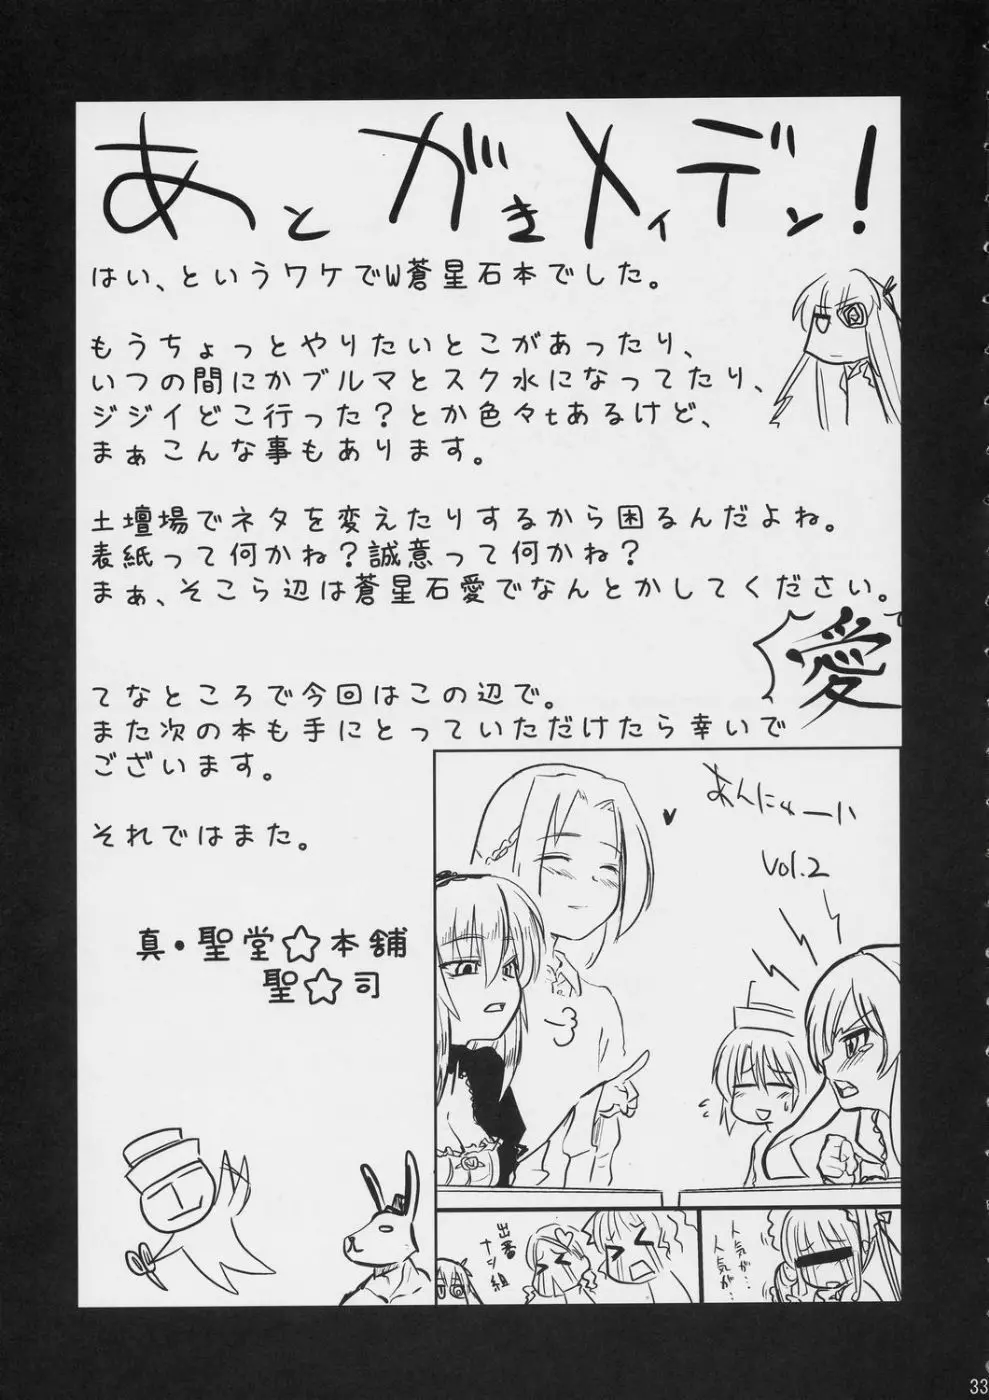 あとがきメイデン！
はい、というワケでW蒼星石本でした。
もうちょっとやりたいとこがあったり、
いつの間にかブルマとスク水になってたり、
ジジイどこ行った？とか色々tあるけど、
まぁこんな事もあります。
土壇場でネタを変えたりするから困るんだよね。
表紙って何かね？誠意って何かね？
まぁ、そこら辺は蒼星石愛でなんとかしてください。
愛
てなところで今回はこの辺で。
また次の本も手にとっていただけたら幸いで
ございます。
それではまた。
真・聖堂☆本舗
聖☆司
あんにゅーい
Vol.2
出番
ナシ組
人気が…
人気が…
33